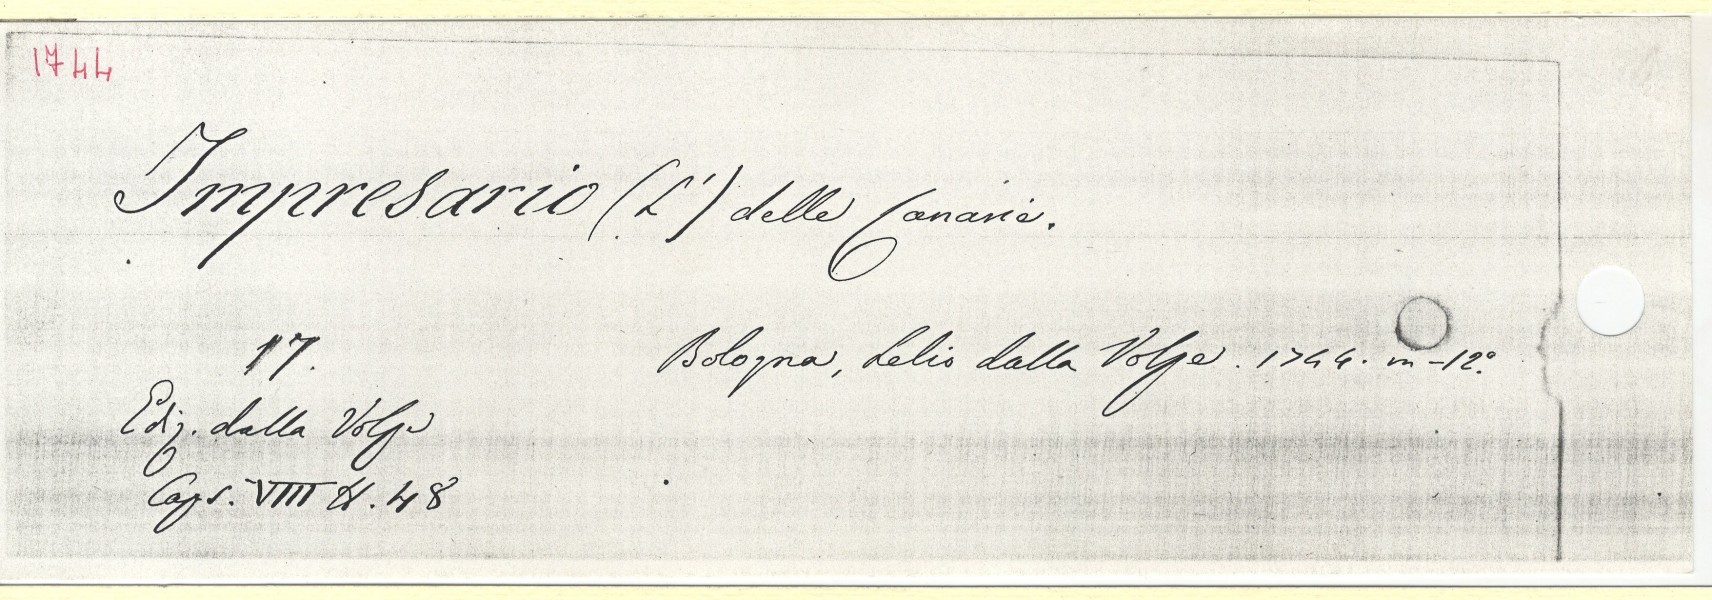 1744
Impresario (L') delle Canarie.
17.
Bologna, Lelio dalla Volpe. 1744. in-12.º
Ediz. dalla Volpe
Caps. VIII N. 48